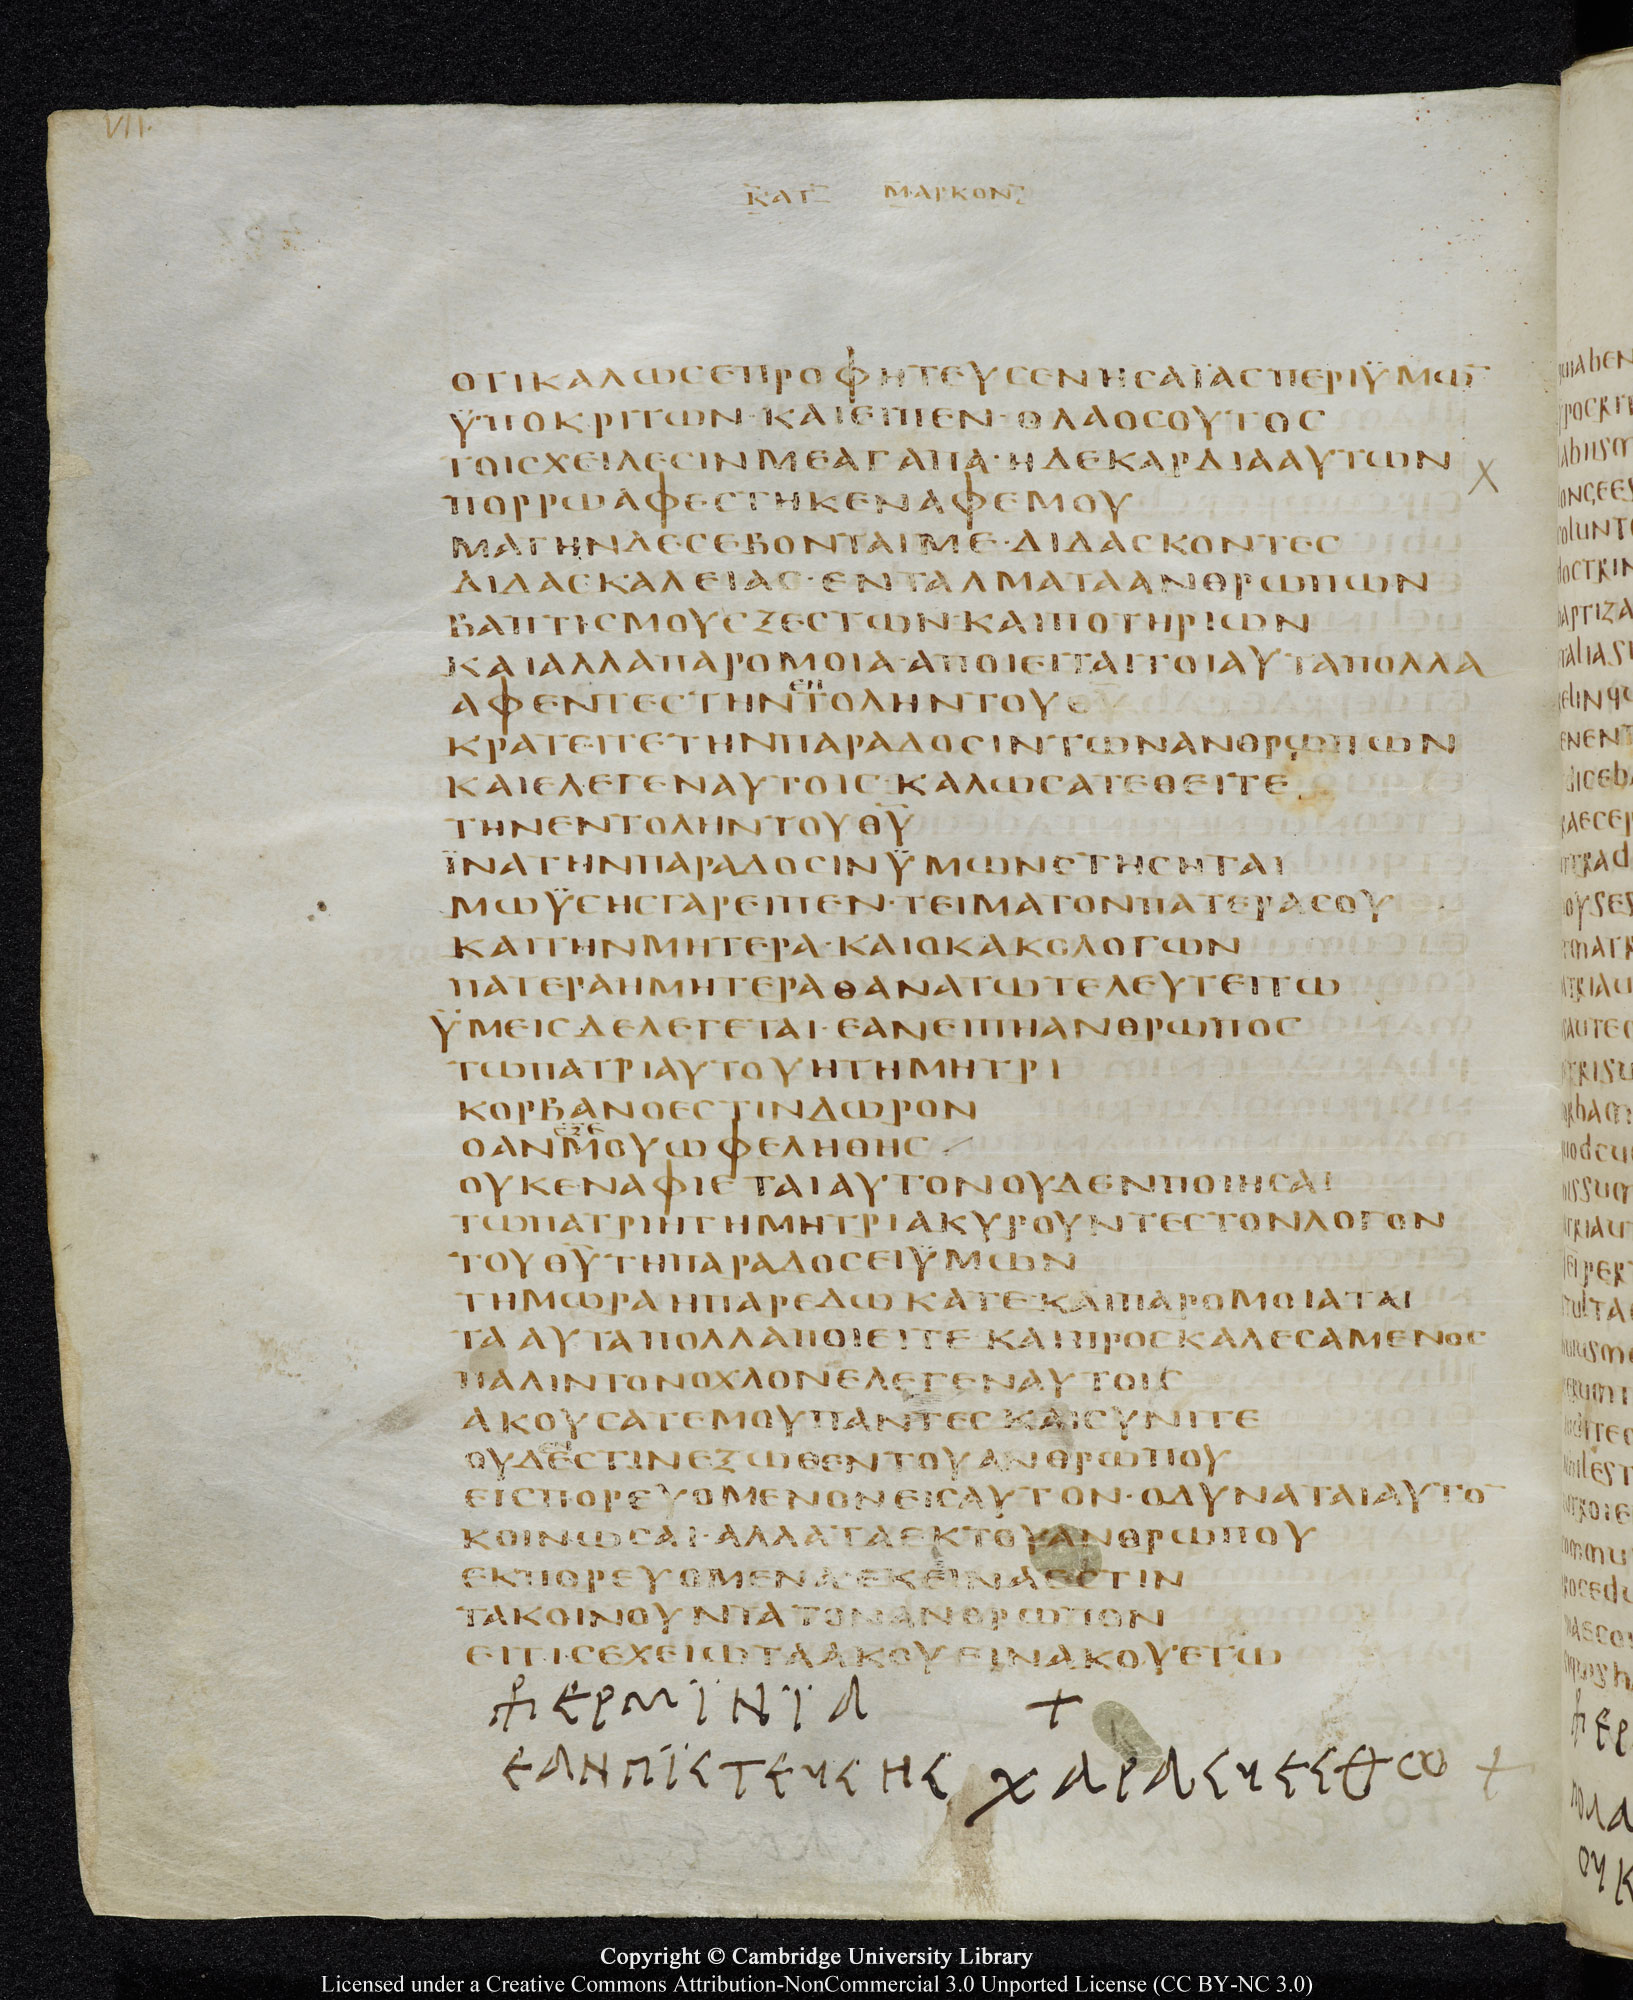 VII.
ΚΑΤ ΜΑΡΚΟΝ
ΟΤΙΚΑΛΩΣΕΠΡΟΦΗΤΕΥΣΕΝΗΣΑΪΑΣΠΕΡΙΫΜΩ̅
ΫΠΟΚΡΙΤΩΝ·ΚΑΙΕΙΠΕΝ·ΟΛΑΟΣΟΥΤΟΣ
ΤΟΙΣΧΕΙΛΕΣΙΝΜΕΑΓΑΠΑ·ΗΔΕΚΑΡΔΙΑΑΥΤΩΝ
ΠΟΡΡΩΑΦΕΣΤΗΚΕΝΑΦΕΜΟΥ
ΜΑΤΗΝΔΕΣΕΒΟΝΤΑΙΜΕ·ΔΙΔΑΣΚΟΝΤΕΣ
ΔΙΔΑΣΚΑΛΕΙΑΣ·ΕΝΤΑΛΜΑΤΑΑΝΘΡΩΠΩΝ
ΒΑΠΤΙΣΜΟΥΣΞΕΣΤΩΝΚΑΙΠΟΤΗΡΙΩΝ
ΚΑΙΑΛΛΑΠΑΡΟΜΟΙΑ·ΑΠΟΙΕΙΤΑΙΤΟΙΑΥΤΑΠΟΛΛΑ
ΑΦΕΝΤΕΣΤΗΝΤΟΛΗΝΤΟΥΘΥ
ΚΡΑΤΕΙΤΕΤΗΝΠΑΡΑΔΟΣΙΝΤΩΝΑΝΘΡΩΠΩΝ
ΚΑΙΕΛΕΓΕΝΑΥΤΟΙΣ·ΚΑΛΩΣΑΤΕΘΕΙΤΕ
ΤΗΝΕΝΤΟΛΗΝΤΟΥΘ̅Υ̅
ΪΝΑΤΗΝΠΑΡΑΔΟΣΙΝΫΜΩΝΣΤΗΣΗΤΑΙ
ΜΩΫΣΗΣΓΑΡΕΙΠΕΝ·ΤΕΙΜΑΤΟΝΠΑΤΕΡΑΣΟΥ
ΚΑΙΤΗΝΜΗΤΕΡΑ·ΚΑΙΟΚΑΚΟΛΟΓΩΝ
ΠΑΤΕΡΑΗΜΗΤΕΡΑΘΑΝΑΤΩΤΕΛΕΥΤΕΙΤΩ
ΫΜΕΙΣΔΕΛΕΓΕΤΑΙ·ΕΑΝΕΙΠΗΑΝΘΡΩΠΟΣ
ΤΩΠΑΤΡΙΑΥΤΟΥΗΤΗΜΗΤΡΙ
ΚΟΡΒΑΝΟΕΣΤΙΝΔΩΡΟΝ
ΟΑΝΜΟΥΩΦΕΛΗΘΗΣ
ΟΥΚΕΝΑΦΙΕΤΑΙΑΥΤΟΝΟΥΔΕΝΠΟΙΗΣΑΙ
ΤΩΠΑΤΡΙΗΤΗΜΗΤΡΙΑΚΥΡΟΥΝΤΕΣΤΟΝΛΟΓΟΝ
ΤΟΥΘ̅Υ̅ΤΗΠΑΡΑΔΟΣΕΙΫΜΩΝ
ΤΗΜΩΡΑΗΠΑΡΕΔΩΚΑΤΕ·ΚΑΙΠΑΡΟΜΟΙΑΤΑΙ
ΤΑΑΥΤΑΠΟΛΛΑΠΟΙΕΙΤΕ·ΚΑΙΠΡΟΣΚΑΛΕΣΑΜΕΝΟΣ
ΠΑΛΙΝΤΟΝΟΧΛΟΝΕΛΕΓΕΝΑΥΤΟΙΣ
ΑΚΟΥΣΑΤΕΜΟΥΠΑΝΤΕΣΚΑΙΣΥΝΙΤΕ
ΟΥΔΕΣΤΙΝΕΞΩΘΕΝΤΟΥΑΝΘΡΩΠΟΥ
ΕΙΣΠΟΡΕΥΟΜΕΝΟΝΕΙΣΑΥΤΟΝ·ΟΔΥΝΑΤΑΙΑΥΤΟ̅
ΚΟΙΝΩΣΑΙ·ΑΛΛΑΤΑΕΚΤΟΥΑΝΘΡΩΠΟΥ
ΕΚΠΟΡΕΥΟΜΕΝΑ·ΕΚΕΙΝΑΕΣΤΙΝ
ΤΑΚΟΙΝΟΥΝΤΑΤΟΝΑΝΘΡΩΠΟΝ
ΕΙΤΙΣΕΧΕΙΩΤΑΑΚΟΥΕΙΝΑΚΟΥΕΤΩ
ΕΡΜΪΝΪΑ +
ΕΑΝΠΪΣΤΕΥΣΗΣ ΧΑΡΑΣΥΕΣΘΩ +
Copyright © Cambridge University Library
Licensed under a Creative Commons Attribution-NonCommercial 3.0 Unported License (CC BY-NC 3.0)